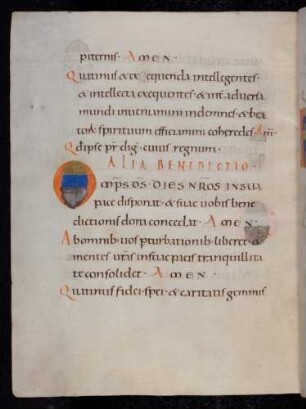 piternis· AMEN·
Quatinus & exsequenda intellegentes·
& intellecta exequentes· & int̄ aduersa
mundi inueniamini indemnes· & bea
torū spirituum efficiamini coheredes· Am̄
Qd ipse p̄r dig· cuius regnum·
ALIA BENEDICTIO·
OMPS D̄S· DIES N̄ROS IN SUA
pace disponat· & suae uobis bene
dictionis dona concedat· AMEN·
Ab omnib· uos pturbationib· liberet· &
mentes ur̄as in suae pacis tranquillita
te consolidet· AMEN·
Quatinus fidei· spei· & caritatis gemmis